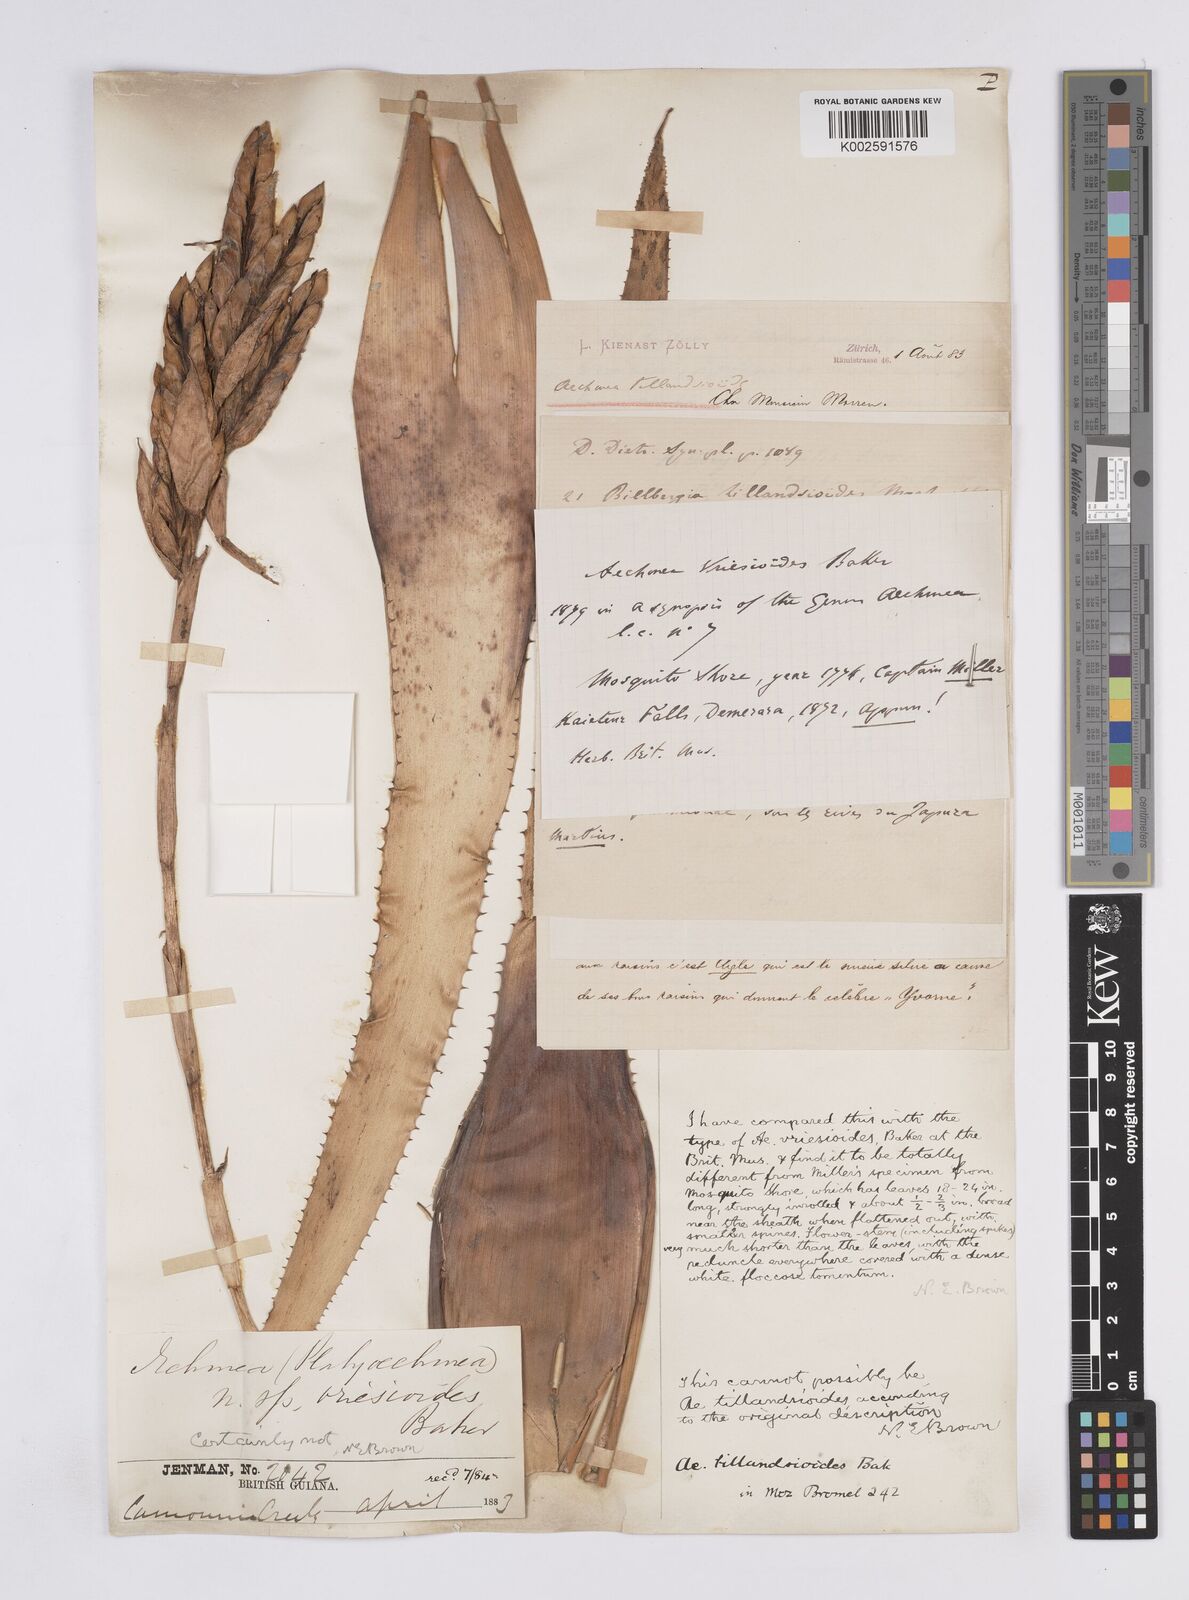 P
ROYAL BOTANIC GARDENS KEW
K002591576
L. KIENAST ZÖLLY
Zürich,
Rämistrasse 46.
1 Août 83
Aechmea tillandsioides
Cher Monsieur Morren.
D. Dietr. Syn. pl. p. 1049
21 Billbergia tillandsioides Mart
Aechmea Vriesioides Baker
1879 in a synopsis of the Genus Aechmea
l.c. n° 7
Mosquito Shore, year 1776, Captain Miller
Kaieteur Falls, Demerara, 1872, Appun!
Herb. Brit. Mus.
, sur les rives du Japura
Martius.
aux raisins c'est qui est le cause
de ses bons raisins qui donnent le célèbre "Yvorne".
I have compared this with the
type of Ae. vriesioides, Baker at the
Brit. Mus. & find it to be totally
different from Miller's specimen from
Mosquito Shore, which has leaves 18-24 in.
long, strongly inrolled & about 1/2-2/3 in. broad
near the sheath when flattened out, with
smaller spines. Flower-stem (including spikes)
very much shorter than the leaves, with the
peduncle everywhere covered with a dense
white floccose tomentum.
N. E. Brown
This cannot possibly be
Ae tillandsioides according
to the original description
N. E. Brown
Ae. tillandsioides Bak
in Mez Bromel 242
Aechmea (Platyaechmea)
n. sp. vriesioides
Baker
Certainly not N E Brown
JENMAN, No.
BRITISH GUIANA.
recd. 7/84
Creek April 1883
inches
Density
Don Williams
M001011
cm
Royal Botanic Gardens
KEW
0 1 2 3 4 5 6 7 8 9 10
cm
copyright reserved